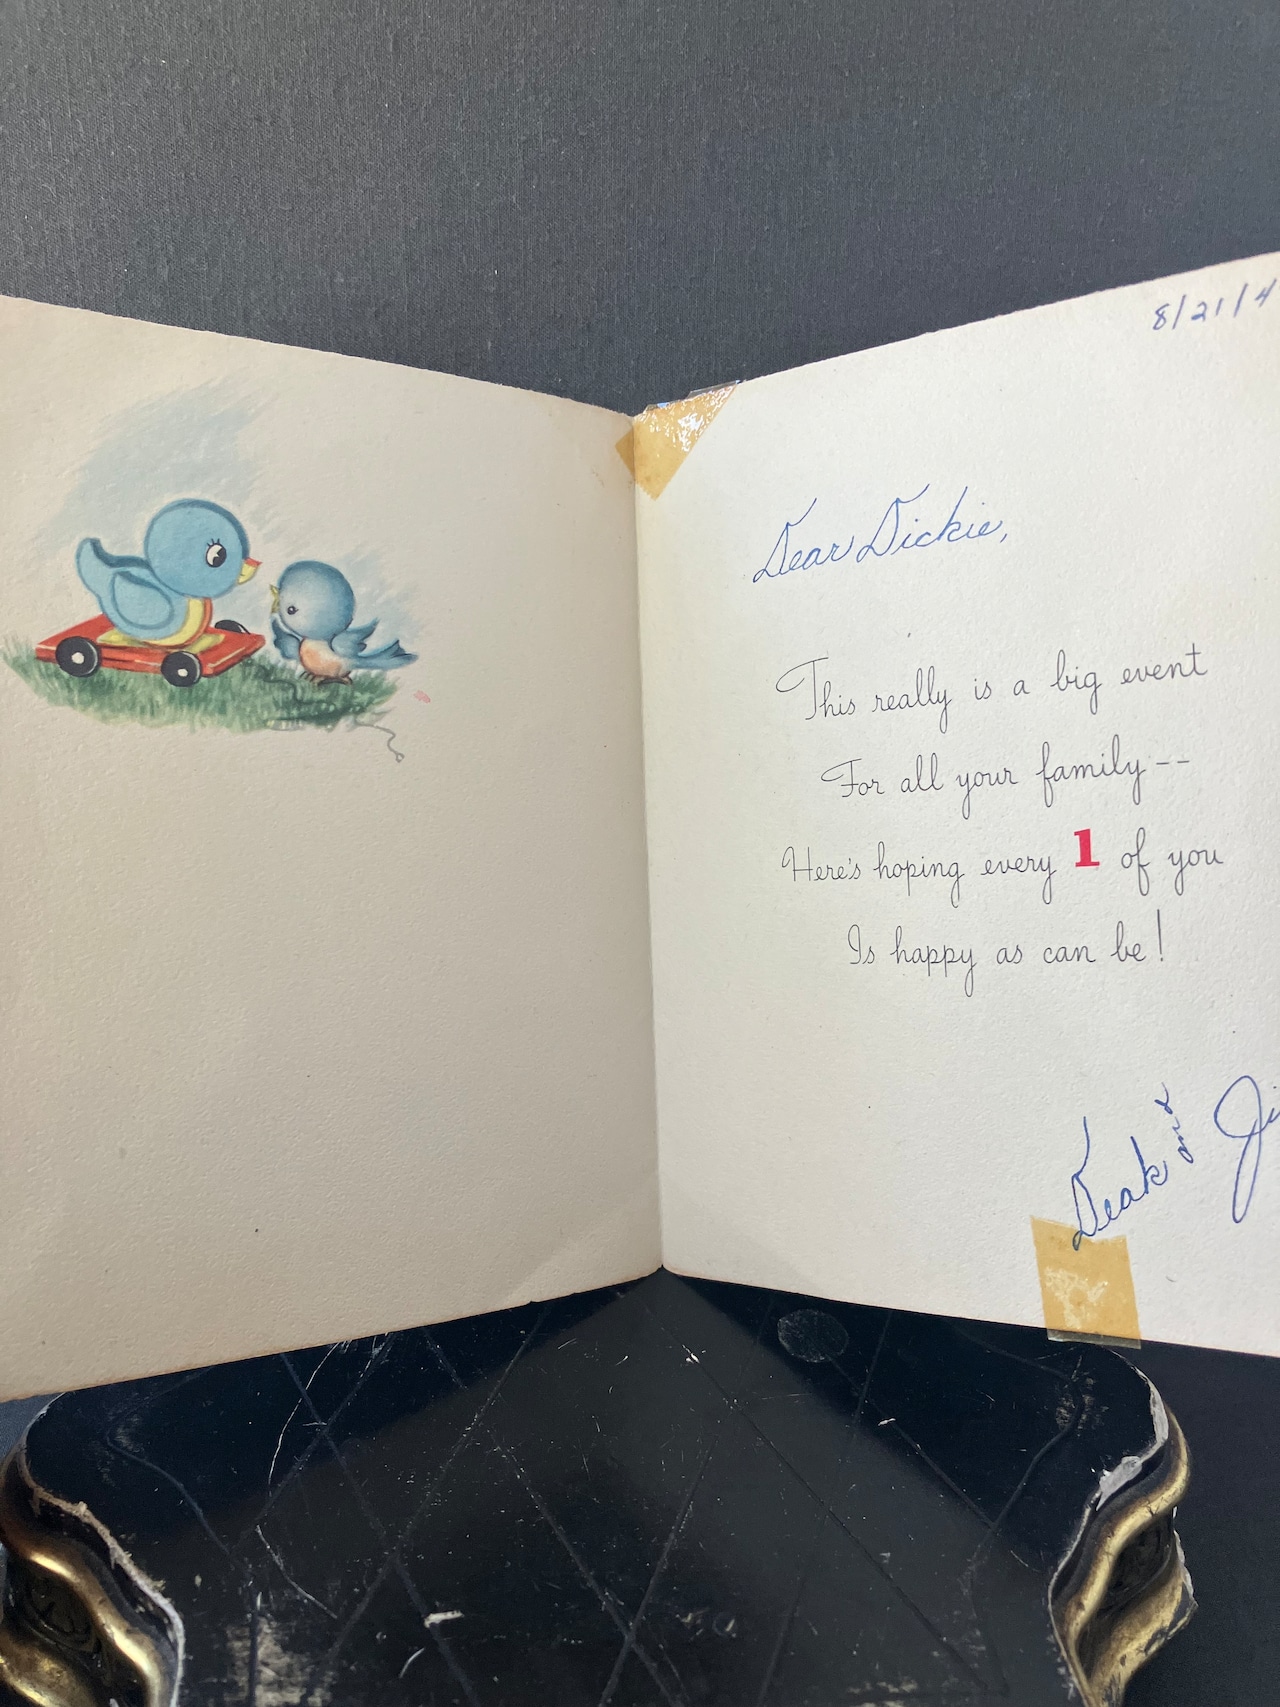 8/21/4
Dear Dickie,
This really is a big event
For all your family--
Here's hoping every 1 of you
Is happy as can be!
Deak and